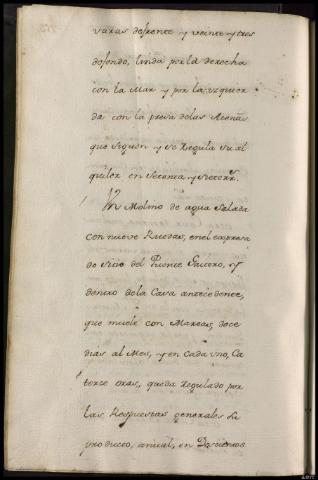 varas defrente y veinte y tres
defondo, linda por la derecha
con la Mar y por la izquier
da con la presa delas Aceñas
que siguen y se Regula su al
quiler en setenta y siete rrs.
Un Molino de agua salada
con nueve Ruedas, en el expresa
do sitio del Puente Gaitero, y
dentro dela Casa antecedente,
que muele con Mareas, doce
dias al Mes, y en cada uno, Ca
torce oras, queda Regulado por
las Respuestas generales su
producto, anual, en Doscientos